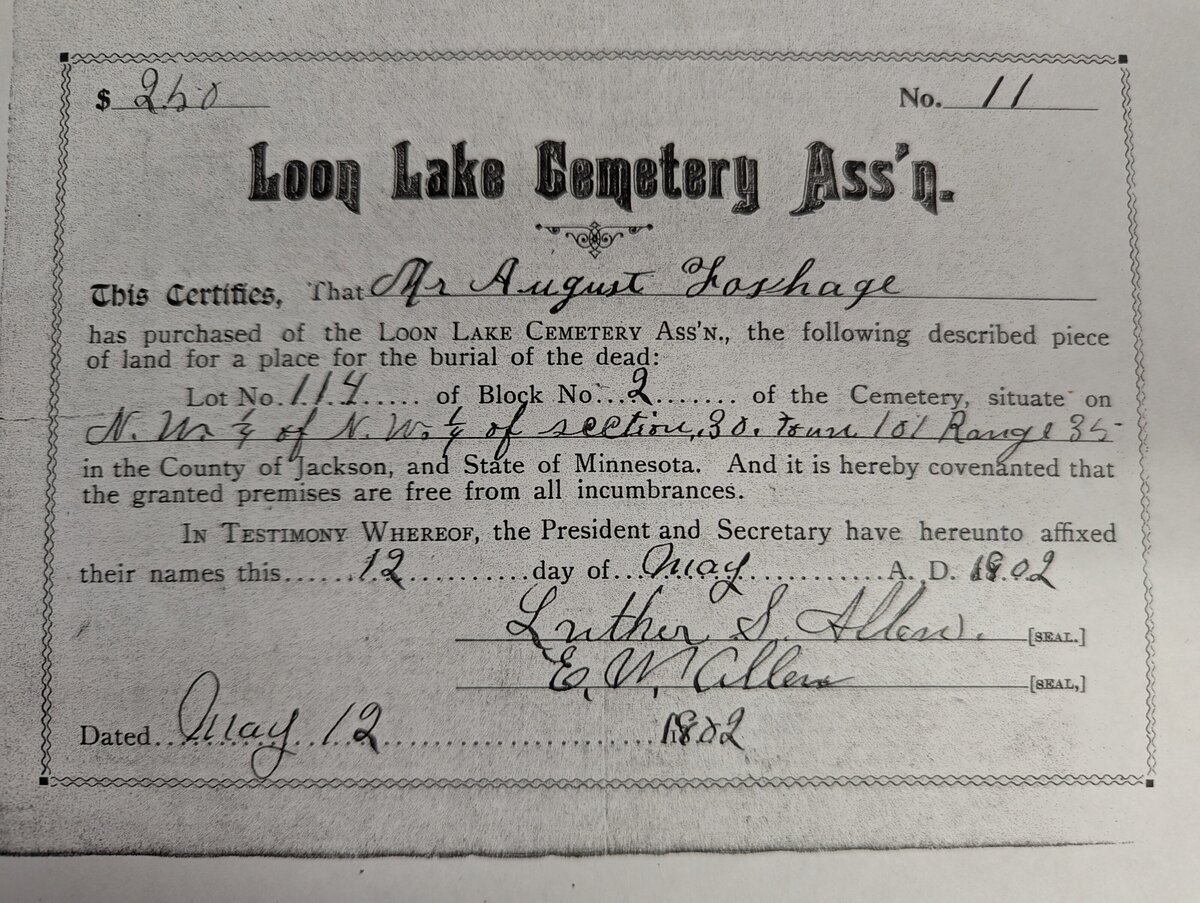 $ 2.50 No. 11
Loon Lake Cemetery Ass'n.
This Certifies, That Mr August Foshage
has purchased of the Loon Lake Cemetery Ass'n., the following described piece
of land for a place for the burial of the dead:
Lot No. 114 of Block No. 2 of the Cemetery, situate on
N.W. ¼ of N.W. ¼ of section, 30. town 101 Range 35
in the County of Jackson, and State of Minnesota. And it is hereby covenanted that
the granted premises are free from all incumbrances.
In Testimony Whereof, the President and Secretary have hereunto affixed
their names this 12 day of May A. D. 1902
Luther S. Allen. [SEAL.]
E. W. Allen [SEAL,]
Dated May 12 1902